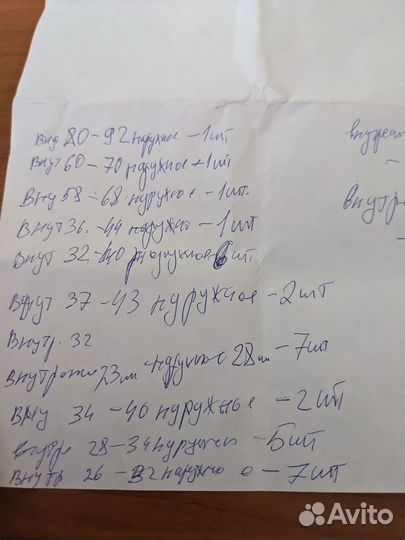 Вну 80-92 наружное - 1 шт
Внут 60-70 наружное - 1 шт
Вну 58-68 нуружное - 1 шт.
Внут 36-44 наружно - 1 шт
Внут 32-40 наружное 6 шт
Внут 37-43 нуружное - 2 шт
Внутр. 32
Внутрение 23мм - наружное 28мм - 7шт
Вну 34-40 нуружные - 2 шт
внутре 28-34 нуружно - 5 шт
Внутр 26-32 наружно е - 7 шт
внутр
-
Avito